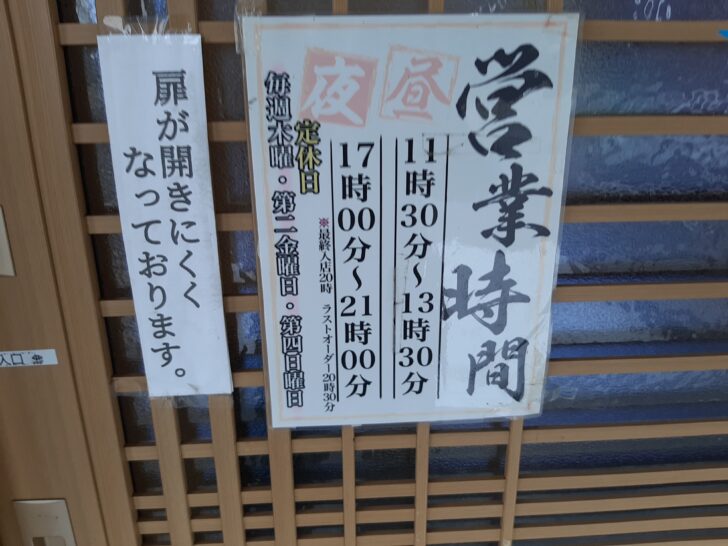 営業時間
昼
11時30分～13時30分
夜
17時00分～21時00分
※最終入店20時 ラストオーダー20時30分
定休日
毎週木曜・第二金曜日・第四日曜日
扉が開きにくく
なっております。
入口